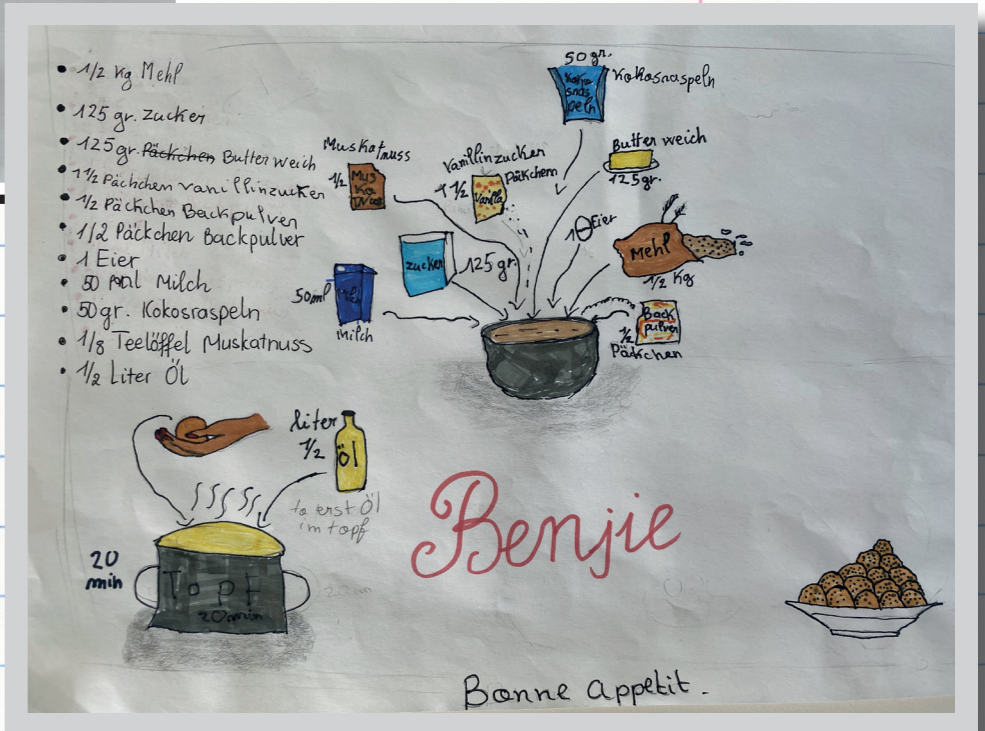 1/2 Kg Mehl
125 gr. Zucker
125 gr. Päckchen Butter weich
1 1/2 Päckchen Vanillinzucker
1/2 Päckchen Backpulver
1/2 Päckchen Backpulver
1 Eier
50 ml Milch
50 gr. Kokosraspeln
1/8 Teelöffel Muskatnuss
1/2 Liter Öl
50 gr.
Kokosnaspeln
Koko
snas
peln
Muskatnuss
1/2
Mus
Ka
Vanillinzucker
Päkchern
1 1/2
Vanilla
Butter weich
125 gr.
1 Eier
Mehl
1/2 Kg
zucker
125 gr.
50 ml
Milch
Back
pulver
1/2
Päckchen
liter
1/2
Öl
to erst Öl
im topf
20
min
Topf
20 min
Benjie
Bonne Appetit.